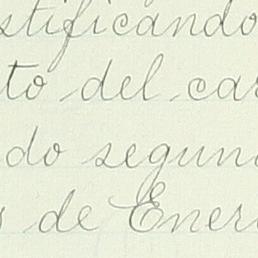 stificando
to del car
do segun
de Ener